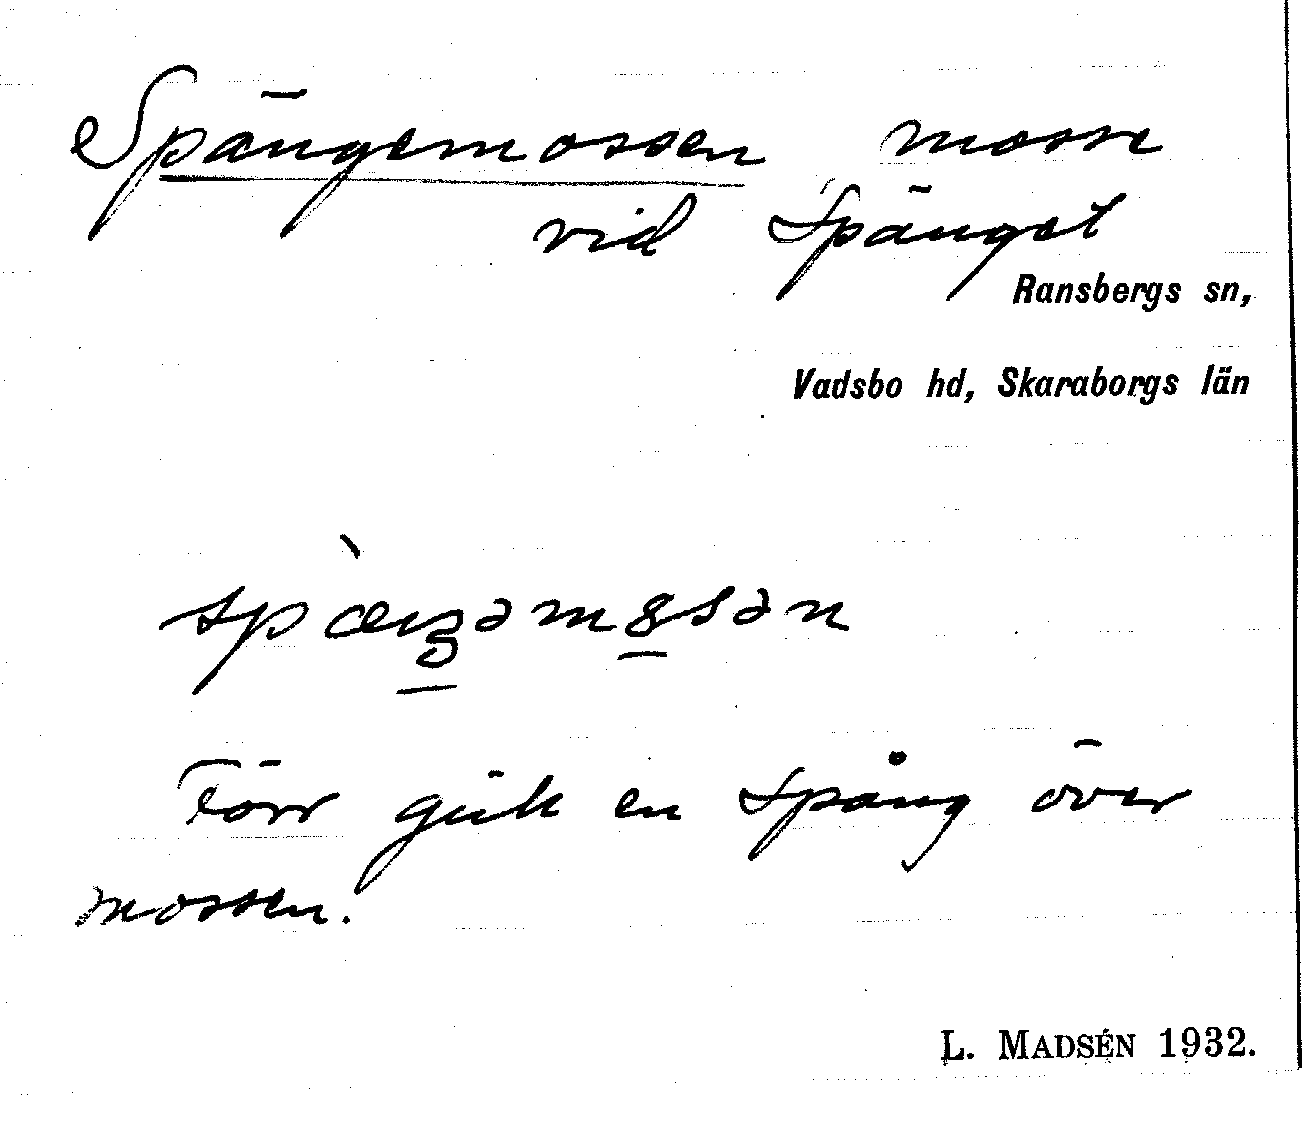 Spängemossen mosse
vid Spänget
Ransbergs sn,
Vadsbo hd, Skaraborgs län
Förr gick en spång över
mossen.
L. MADSÉN 1932.